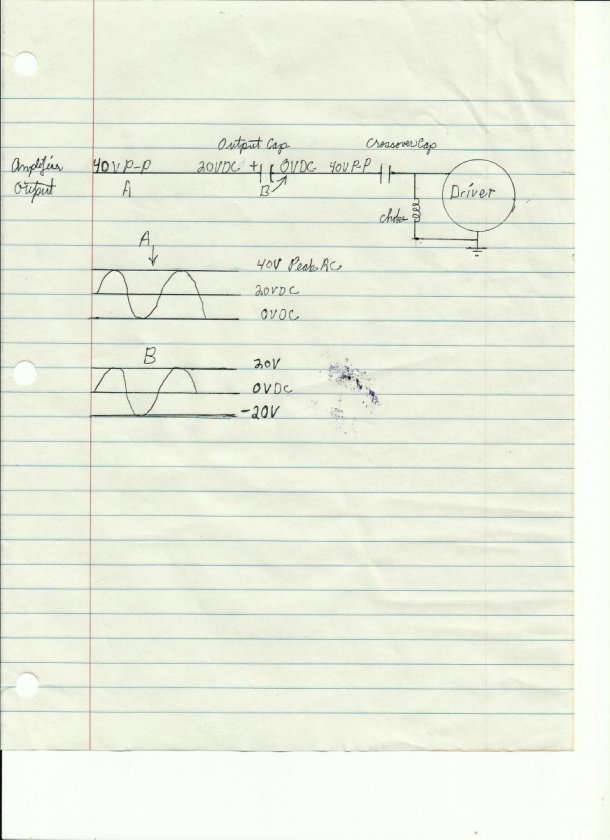 Output Cap Crossover Cap
Amplifier 40V P-P 20VDC + 0VDC 40V P-P
Output A B Driver
choke
A
40V Peak AC
20VDC
0VDC
B
20V
0VDC
-20V